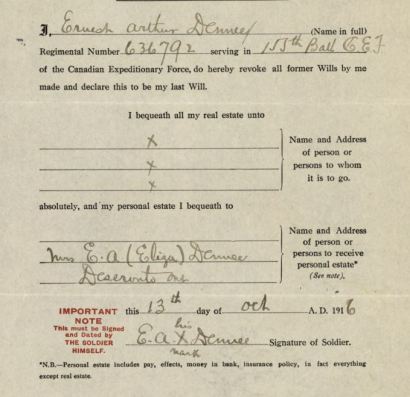 I, Ernest Arthur Demee (Name in full)
Regimental Number 636792 serving in 155th Batt C.E.F
of the Canadian Expeditionary Force, do hereby revoke all former Wills by me
made and declare this to be my last Will.
I bequeath all my real estate unto
x
x
x
Name and Address
of person or
persons to whom
it is to go.
absolutely, and my personal estate I bequeath to
Mrs E. A (Eliza) Demee
Deseronto Ont
Name and Address
of person or
persons to receive
personal estate*
(See note).
IMPORTANT
NOTE
This must be Signed
and Dated by
THE SOLDIER
HIMSELF.
this 13th day of Oct A. D. 1916
his
E. A. X Demee Signature of Soldier.
mark
*N.B.—Personal estate includes pay, effects, money in bank, insurance policy, in fact everything
except real estate.